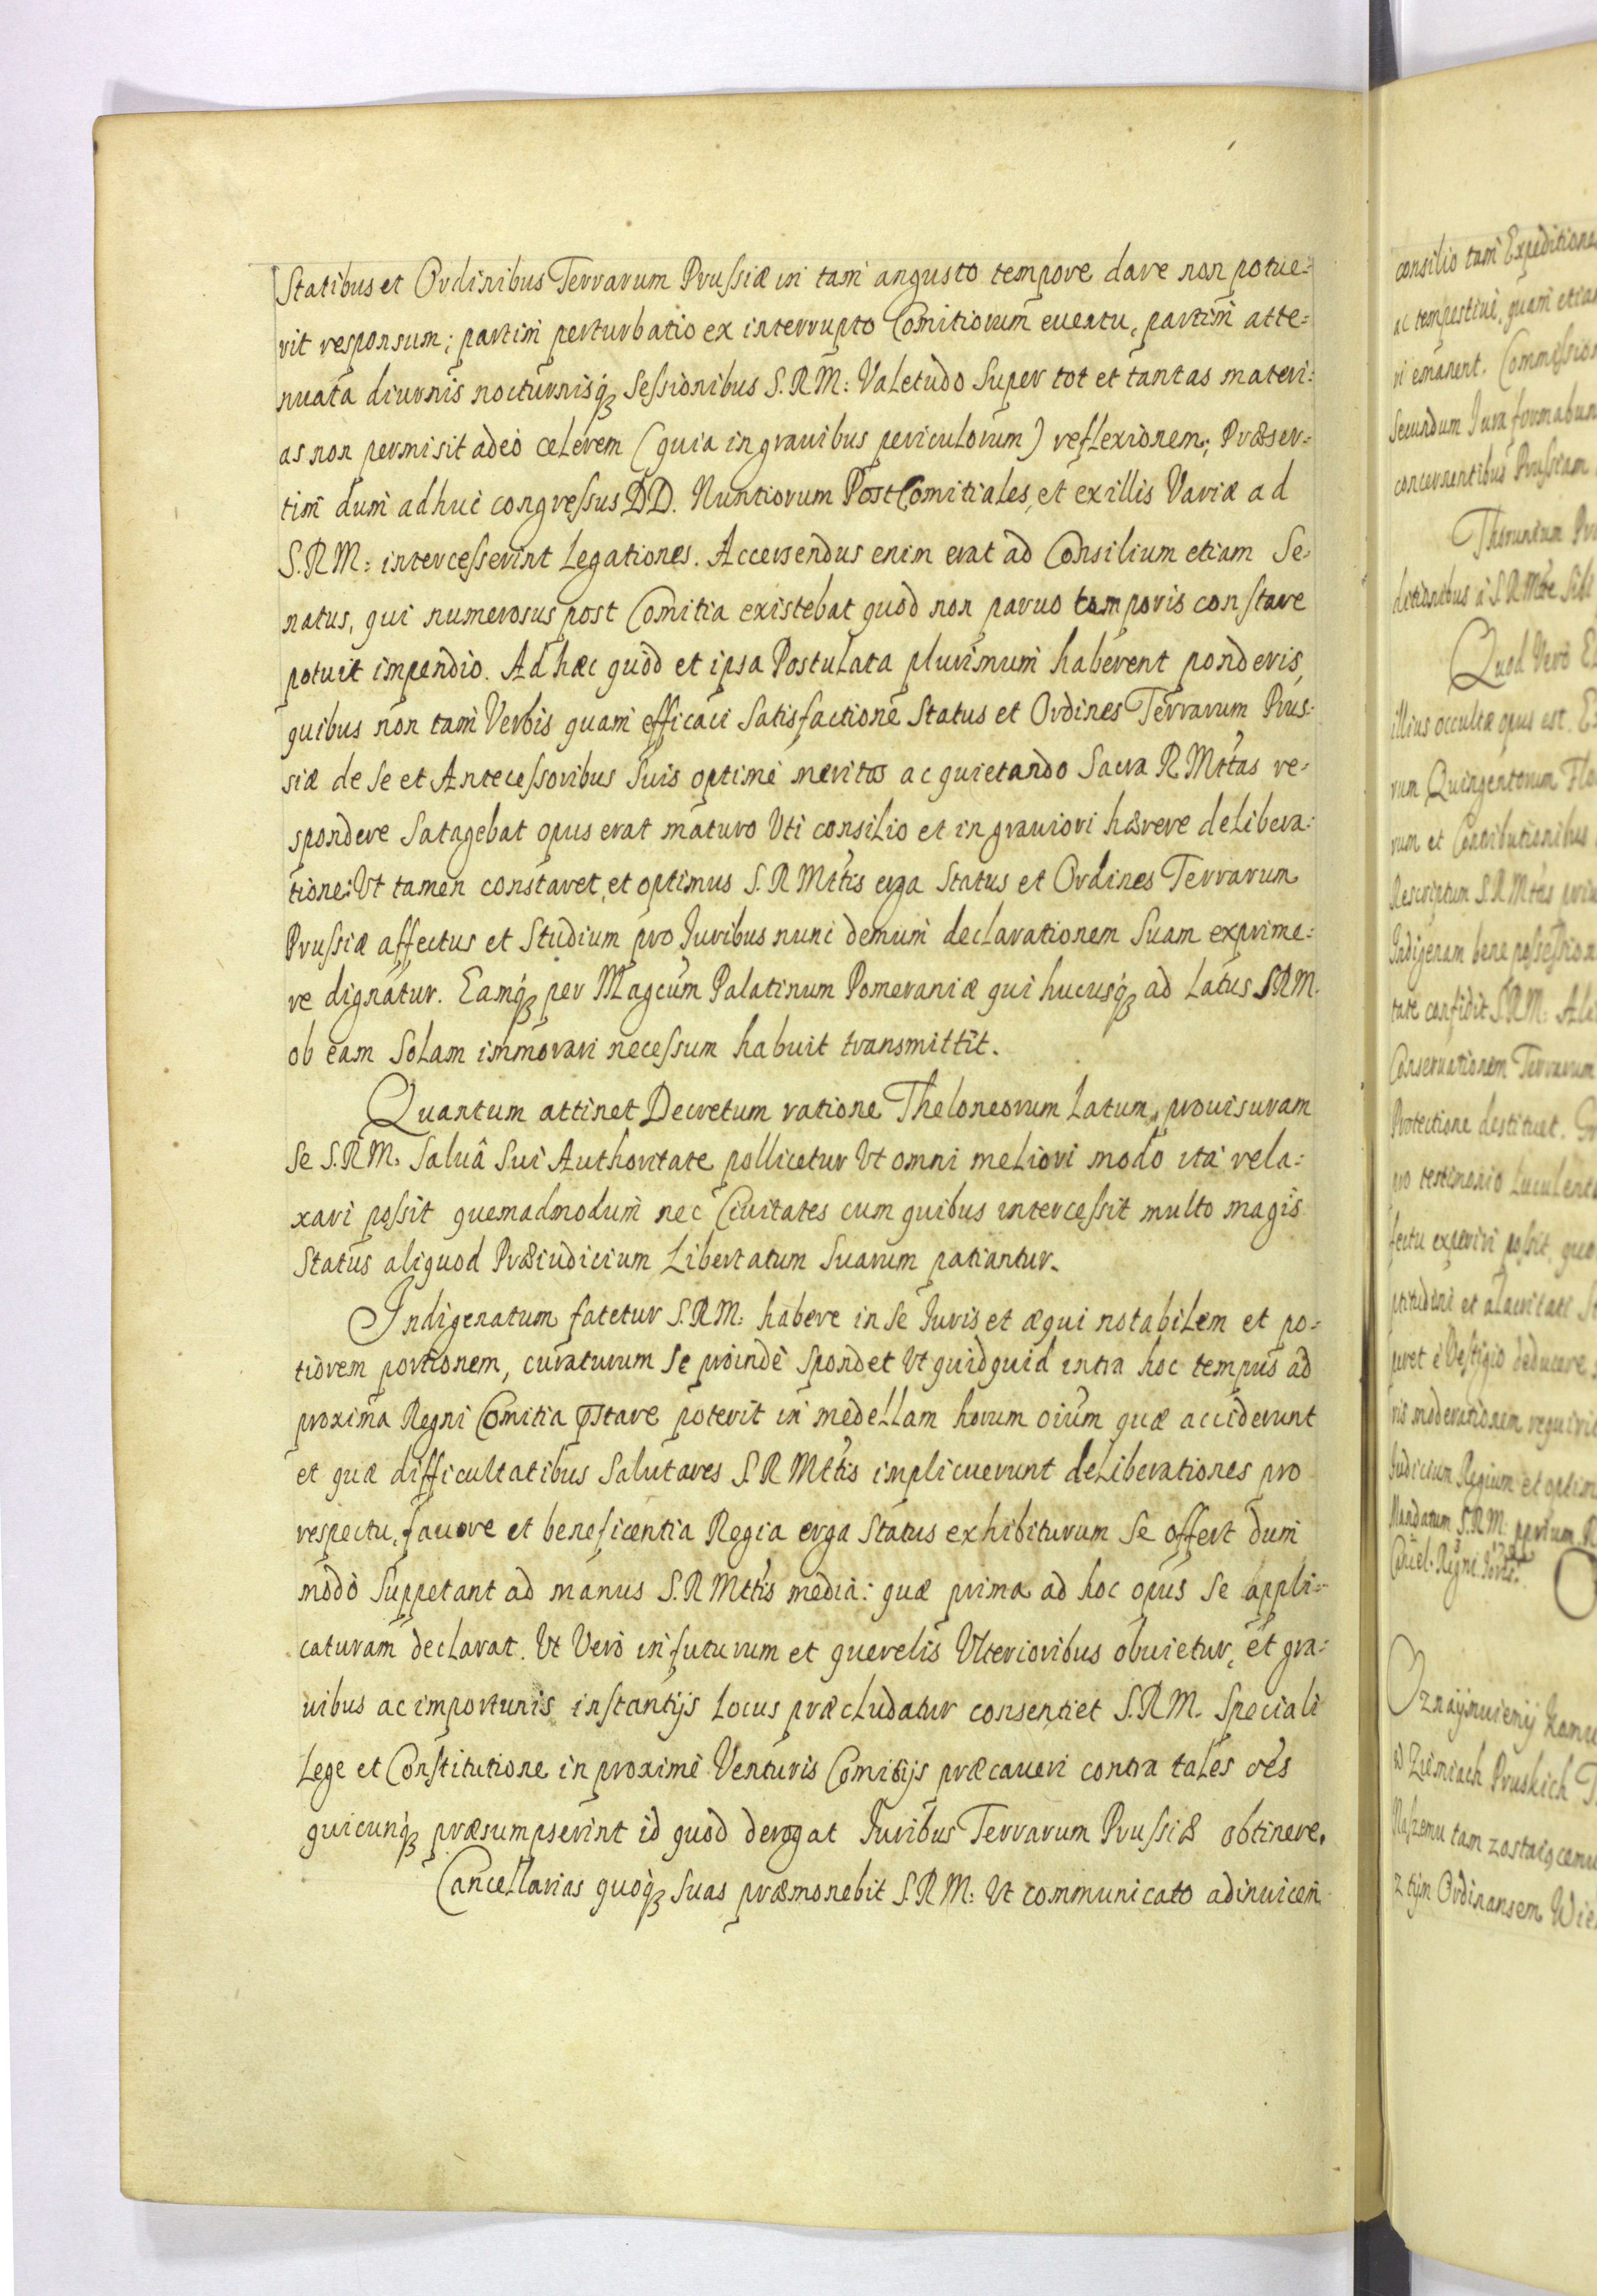 Statibus et Ordinibus Terrarum Prussiæ in tam angusto tempore dare non potue=
rit responsum; partim perturbatio ex interrupto Comitiorum euentu, partim atte=
nuata diurnis nocturnisq; Sessionibus S.R.M: Valetudo Super tot et tantas materi=
as non permisit adeò celerem (quia in grauibus periculorum) reflexionem; Præser=
tim dum adhuc congressus DD. Nuntiorum Post Comitiales, et ex illis Variæ ad
S.R.M: intercesserint Legationes. Accersendus enim erat ad Consilium etiam Se=
natus, qui numerosus post Comitia existebat quod non paruo temporis constare
potuit impendio. Ad hæc quòd et ipsa Postulata plurimum haberent ponderis,
quibus non tam Verbis quam efficaci Satisfactione Status et Ordines Terrarum Prus=
siæ de Se et Antecessoribus Suis optimè meritos acquietando Sacra R Mttas re=
spondere Satagebat opus erat maturo Vti consilio et in grauiori hærere delibera=
tione: Vt tamen constaret, et optimus S.R Mttis erga Status et Ordines Terrarum
Prussiæ affectus et Studium pro Juribus nunc demum declarationem Suam exprime=
re dignatur. Eamq; per Magcum Palatinum Pomeraniæ qui hucusq; ad Latus SRM.
ob eam Solam immorari necessum habuit transmittit.
Quantum attinet Decretum ratione Theloneorum Latum, prouisuram
Se S.R.M. Saluâ Sui Authoritate pollicetur Vt omni meliori modo ita rela=
xari possit quemadmodum nec Ciuitates cum quibus intercessit multo magis
Status aliquod Præiudicium Libertatum Suarum patiantur.
Indigenatum fatetur S.R.M: habere in Se Juris et æqui notabilem et po=
tiorem portionem, curaturum Se proindè Spondet Vt quidquid intra hoc tempus ad
proxima Regni Comitia pstare poterit in medellam horum oium quæ acciderunt
et quæ difficultatibus Salutares S.R Mttis implicuerunt deLiberationes pro
respectu, fauore et beneficentia Regia erga Status exhibiturum Se offert dum
modò Suppetant ad manus S.R Mttis media: quæ prima ad hoc opus Se appli=
caturam declarat. Vt Verò in futurum et querelis Vlterioribus obuietur, et gra=
uibus ac importunis instantijs Locus præcludatur consentiet S.R.M. Speciali
Lege et Constitutione in proximè Venturis Comitijs præcaueri contra tales res
quicunq; præsumpserint id quod derogat Juribus Terrarum Prussiæ obtinere.
Cancellarias quoq; Suas præmonebit S.R.M: Vt communicato adinuicem
consilio tam Expeditiones
ac tempestiuè, quam etiam
ri emanent.
Secundum Jura formabun
concernentibus Prussiam
Quod Verò
illius occultæ opus est.
rum Quingentorum Flo
rum et Contributionibus
Rescriptum S.R Mttis
Indigenam bene possession
tate confidit S.R.M:
Conseruationem Terrarum
Protectione destituet.
pro testimonio Luculent
fectu experiri possit, quo
ptitudini et alacritati
ris moderationem requiri
Judicium Regium et optim
Mandatum S.R.M.
Oznaÿmuiemÿ
Ziemiach Pruskich
Naszemu tam zostaiącemu
z tÿm Ordinansem